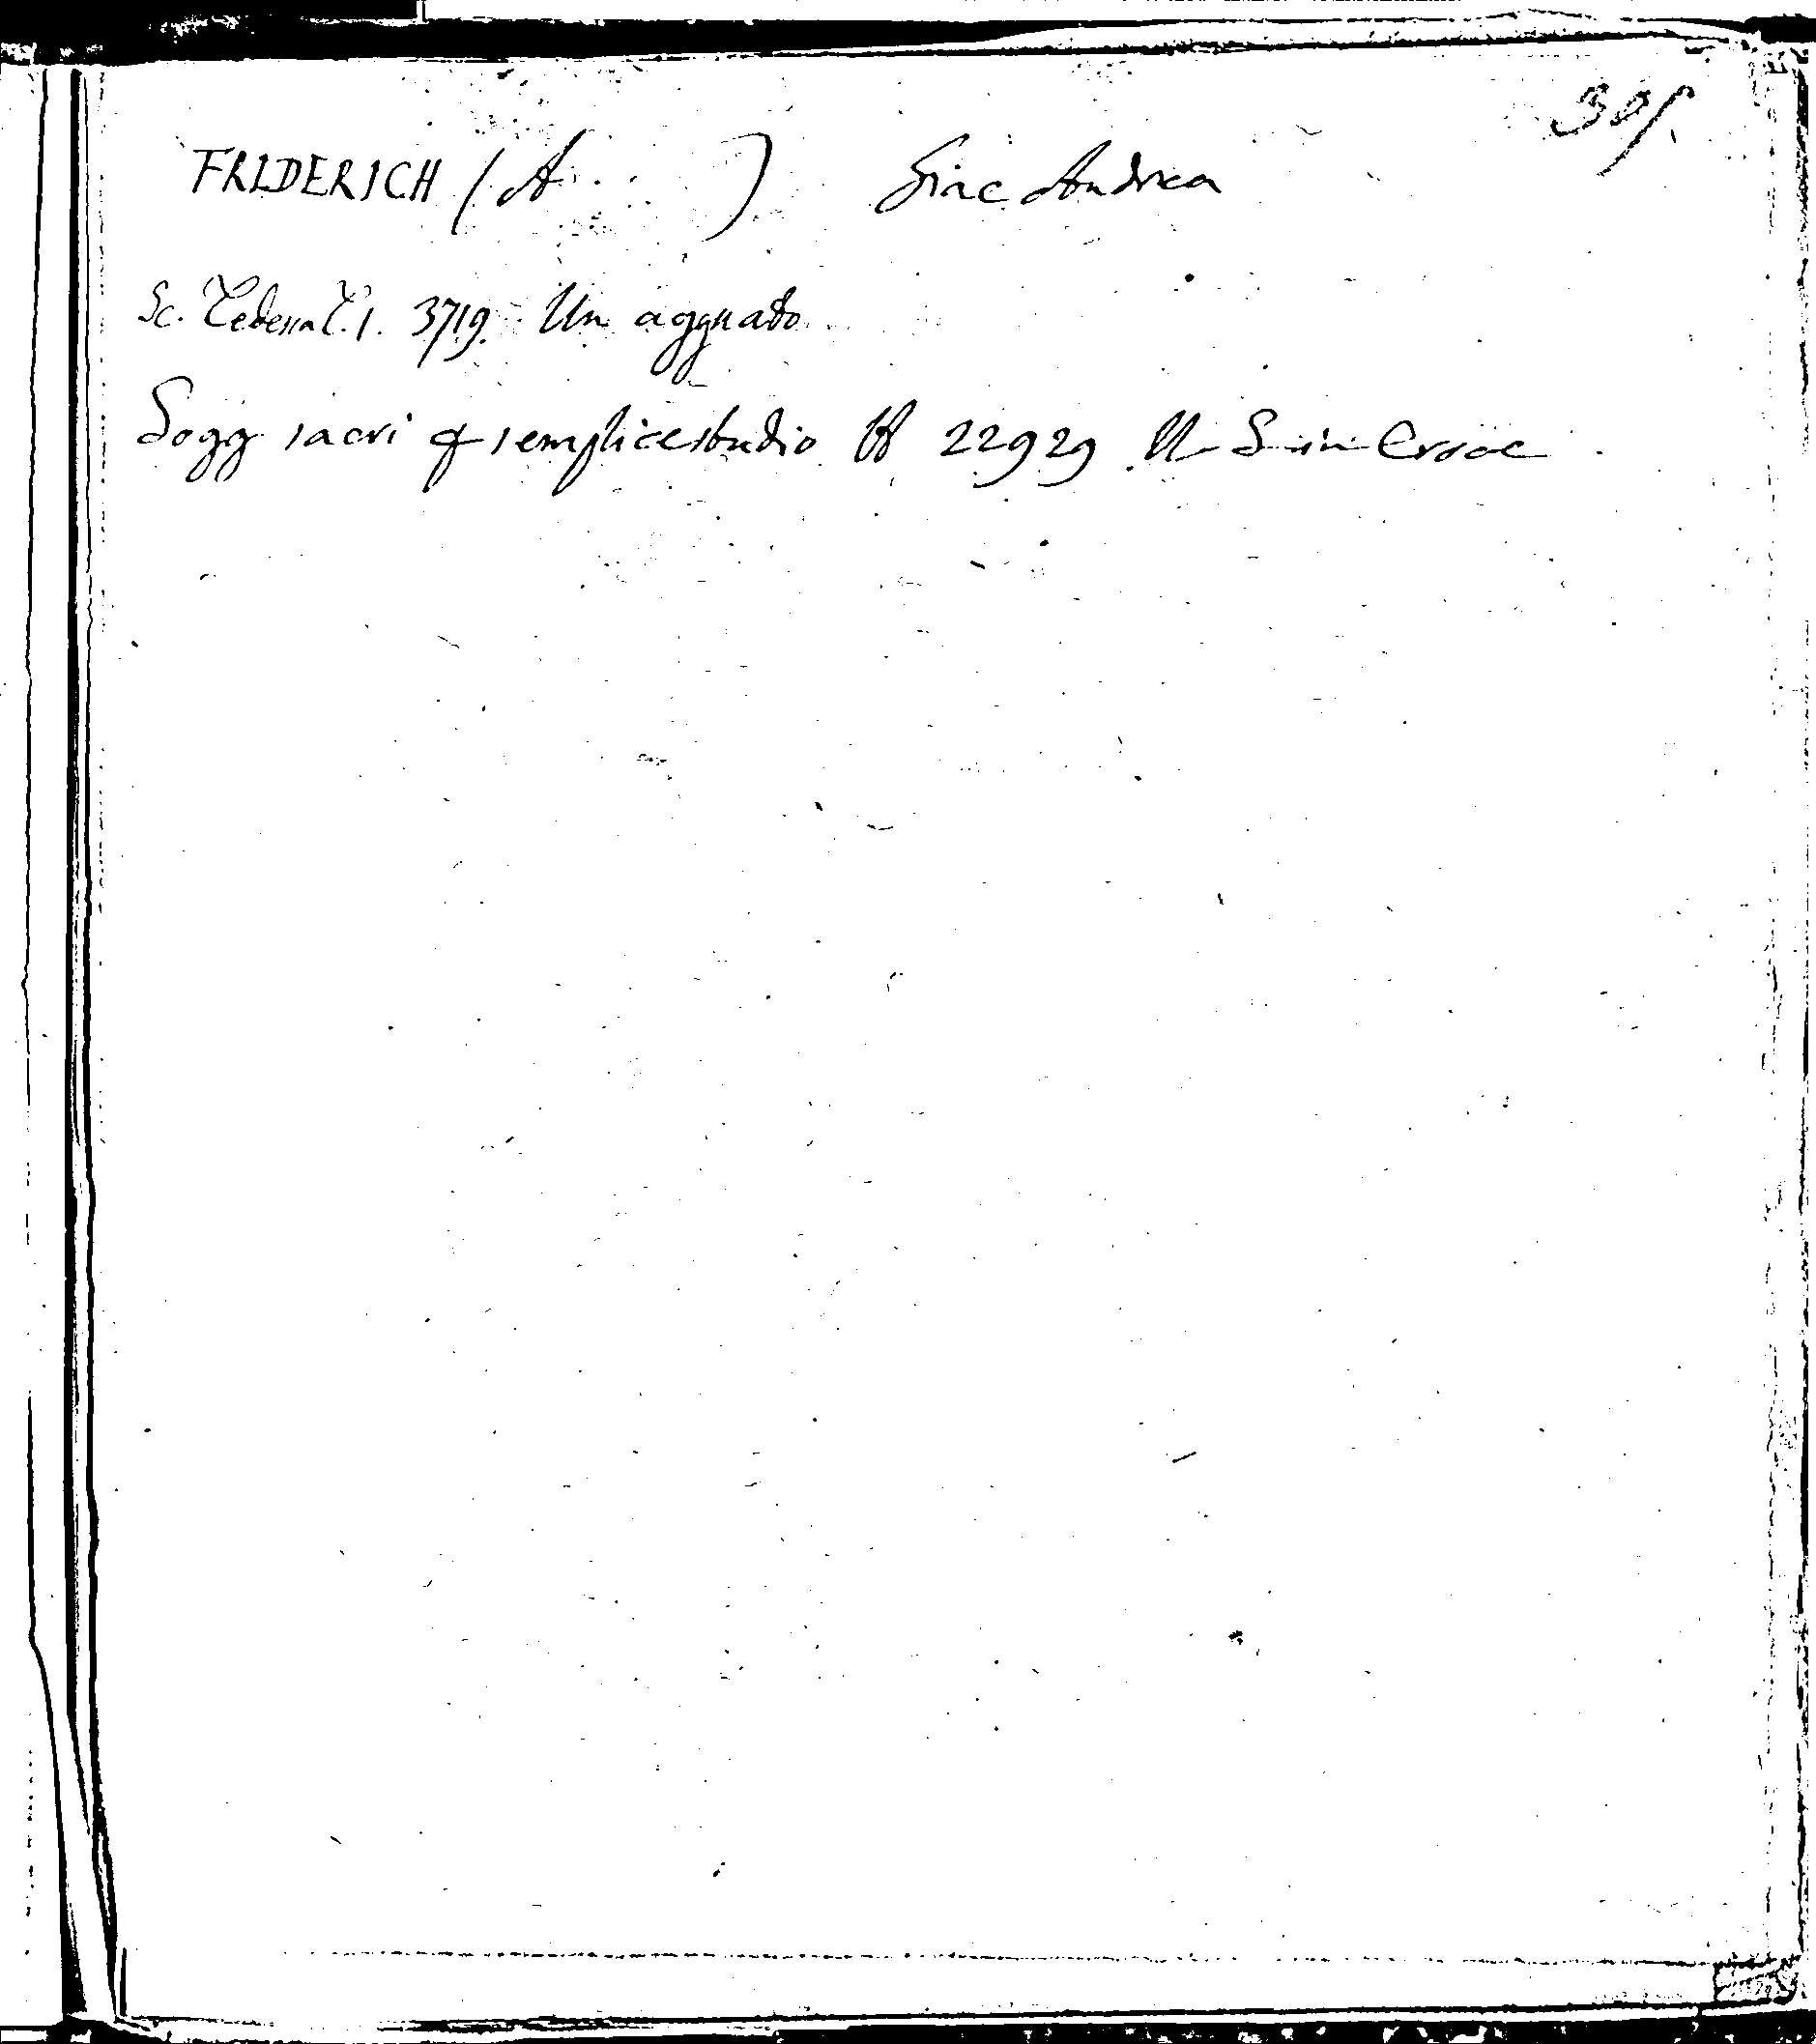 305.
FRIDERICH (A ) Giac Andrea
Sc. Tedesca C. 1. 3719. Un agguato
Sogg sacri q semplice studio H 22929 N S in Croce